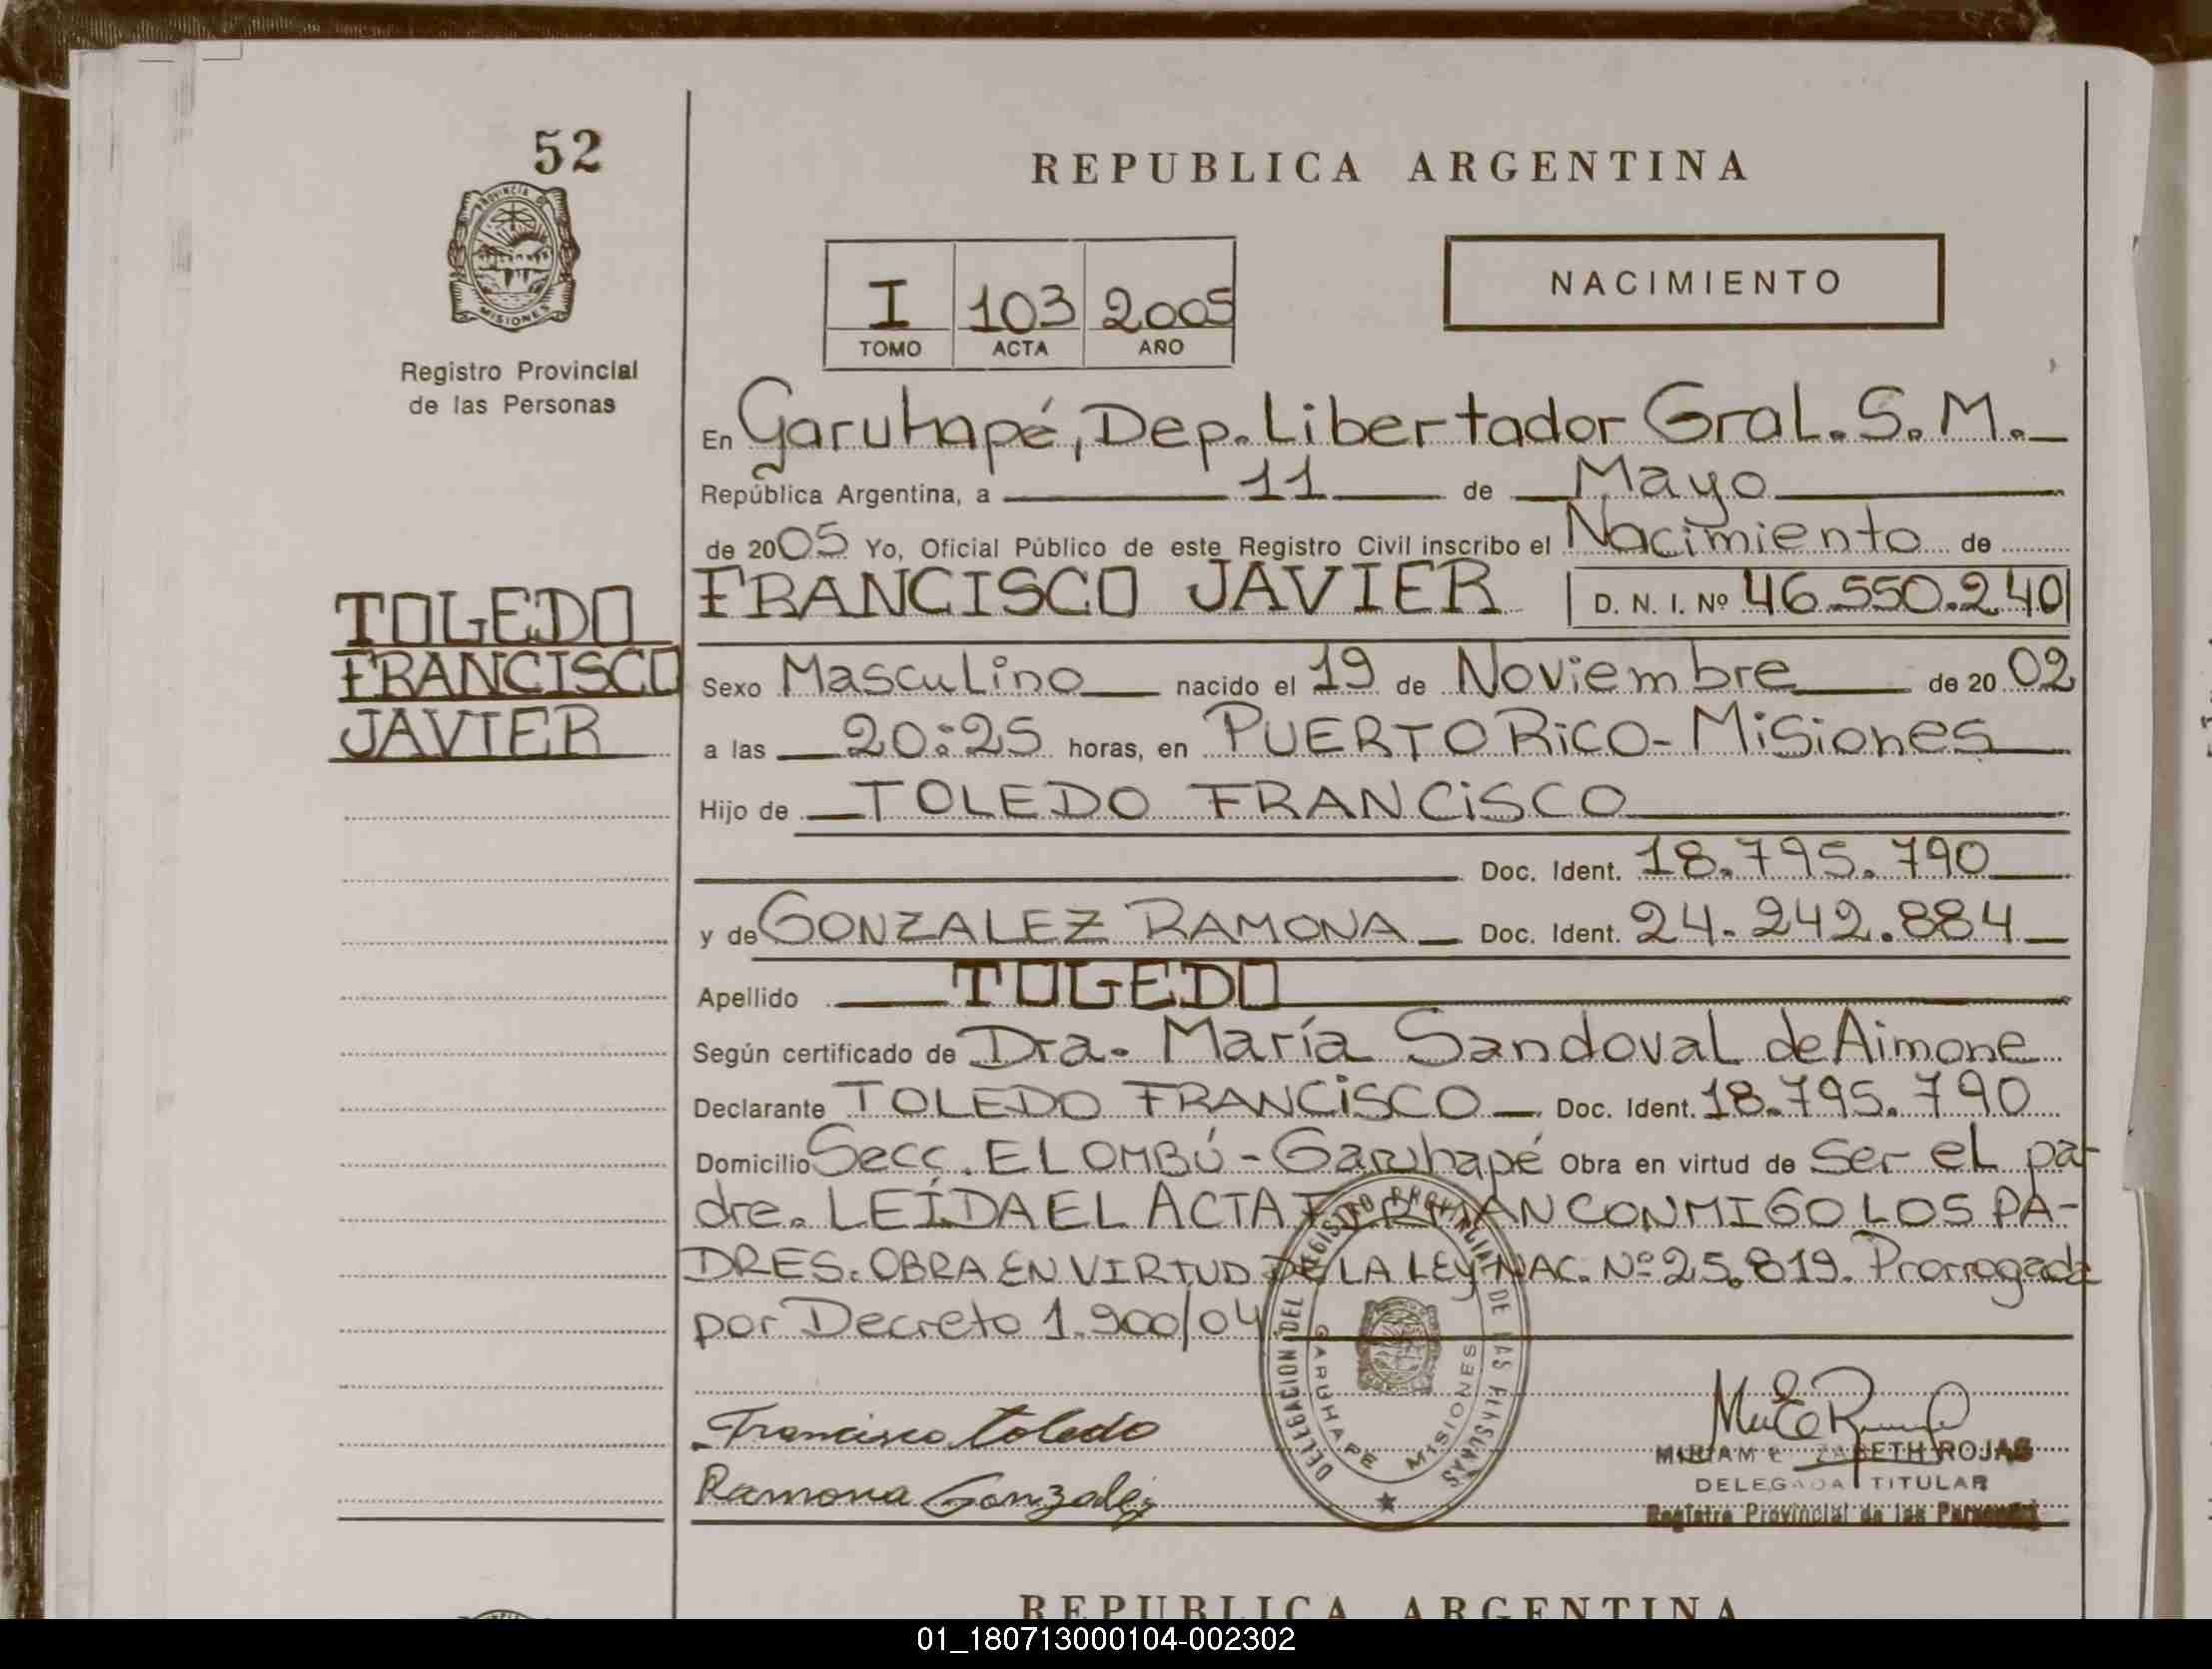 52
PROVINCIA DE
MISIONES
Registro Provincial
de las Personas
TOLEDO
FRANCISCO
JAVIER
REPUBLICA ARGENTINA
NACIMIENTO
I 103 2005
TOMO ACTA AÑO
En Garuhapé, Dep. Libertador Gral. S. M.
República Argentina, a 11 de Mayo
de 2005 Yo, Oficial Público de este Registro Civil inscribo el Nacimiento de
FRANCISCO JAVIER D. N. I. Nº 46.550.240
Sexo Masculino nacido el 19 de Noviembre de 20 02
a las 20:25 horas, en PUERTO RiCO - Misiones
Hijo de TOLEDO FRANCiSCO
Doc. Ident. 18.795.790
y de GONZALEZ RAMONA Doc. Ident. 24.242.884
Apellido TOLEDO
Según certificado de Dra. María Sandoval de Aimone
Declarante TOLEDO FRANCiSCO Doc. Ident. 18.795.790
Domicilio Secc. EL OMBÚ - Garuhapé Obra en virtud de ser el pa-
dre. LEÍDA EL ACTA FIRMAN CONMIGO LOS PA-
DRES. OBRA EN VIRTUD DE LA LEY NAC. Nº 25.819. Prorrogada
por Decreto 1.900/04
DELEGACION DEL REGISTRO PROVINCIAL DE LAS PERSONAS
GARUHAPE MISIONES
Francisco Toledo
Ramona Gonzalez
MIRIAM ELIZABETH ROJAS
DELEGADA TITULAR
Registro Provincial de las Personas
REPUBLICA ARGENTINA
01_180713000104-002302